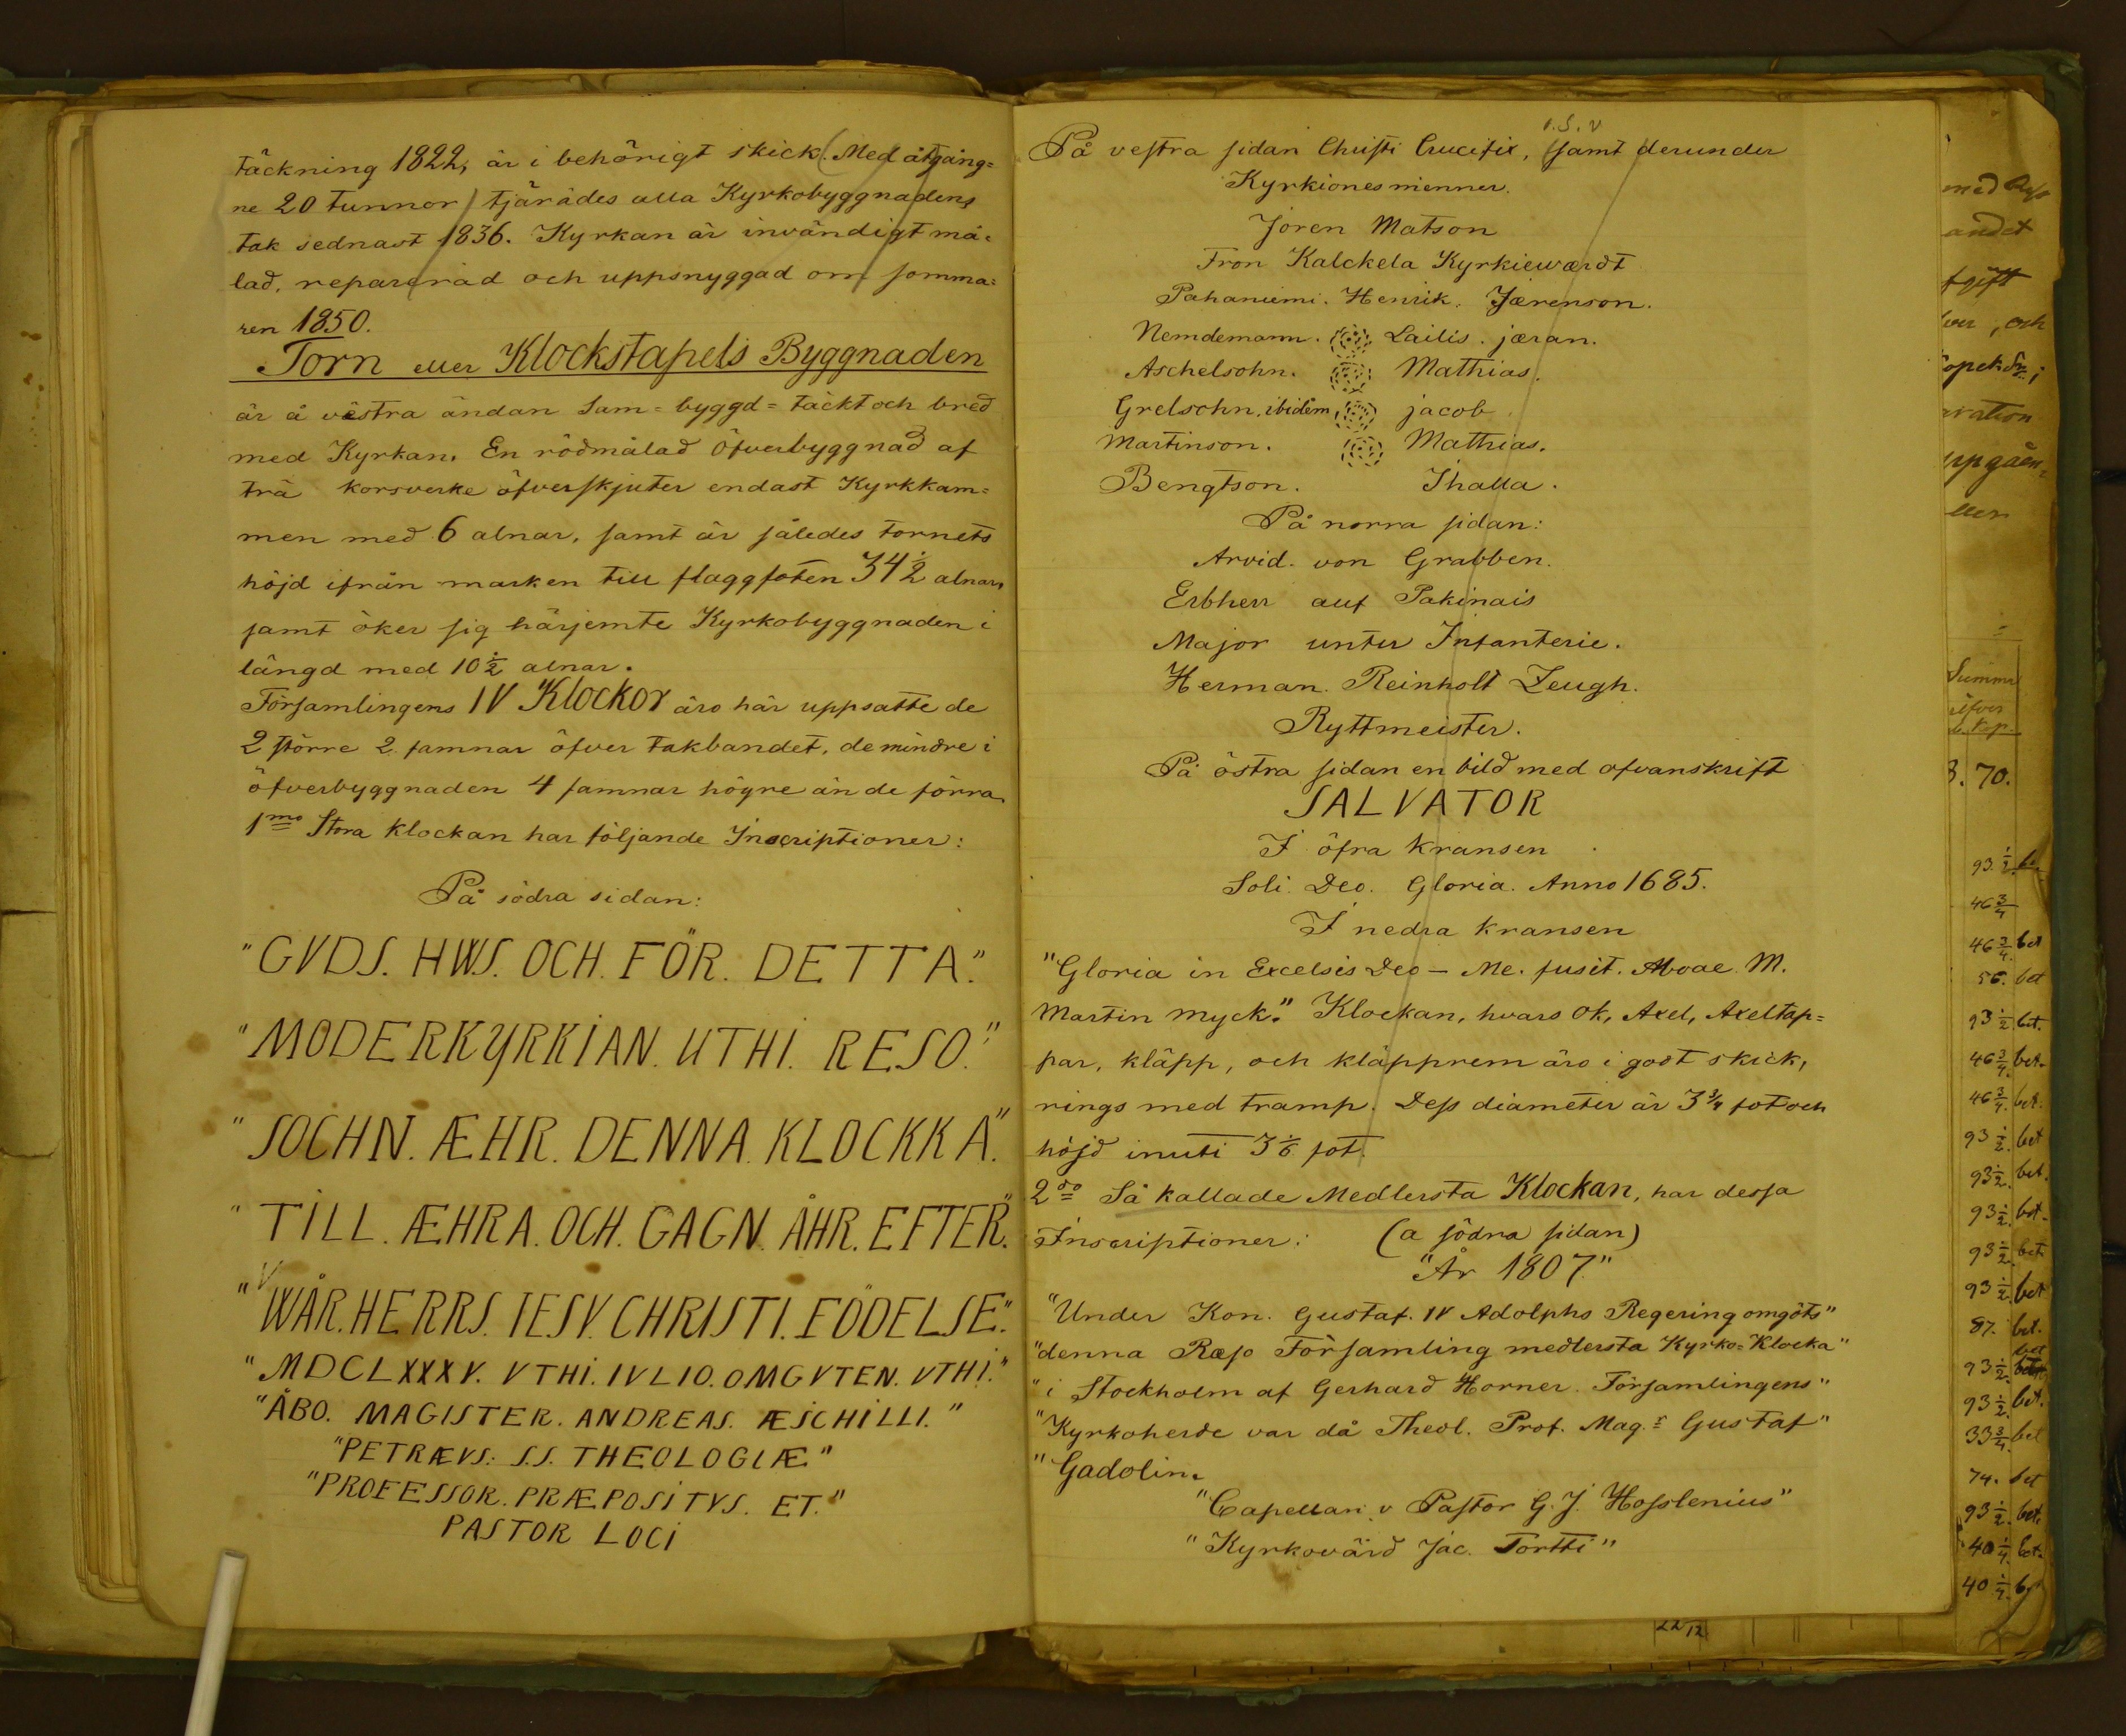 täckning 1822, är i behörigt skick (Med åtgång=
ne 20 tunnor) tjärådes alla Kyrkobyggnadens
tak sednast 1836. Kyrkan är invändigt må=
lad, reparerad och uppsnyggad om somma=
ren 1850.
Torn eller Klockstapels Byggnaden
är å västra ändan Sam=byggd=täckt och bred
med Kyrkan. En rödmålad öfverbyggnad af
trä korsverke öfverskjuter endast Kyrkkam=
men med 6 alnar, samt är således tornets
höjd ifrån marken till flaggfoten 34 1/2 alnar,
samt öker sig härjemte Kyrkobyggnaden i
längd med 10 1/2 alnar.
Församlingens IV Klockor äro här uppsatte de
2 större 2 famnar öfver takbandet, de mindre i
öfverbyggnaden 4 famnar högre än de förra.
1mo Stora klockan har följande Inscriptioner:
På södra sidan:
"GVDS. HWS. OCH. FÖR. DETTA."
"MODERKYRKIAN. UTHI. RESO."
"SOCHN. ÆHR. DENNA. KLOCKKA."
"TILL. ÆHRA. OCH. GAGN. ÅHR. EFTER."
"WÅR. HERRS. IESV. CHRISTI. FÖDELSE."
"MDCLXXXV. VTHI. IVLIO. OMGVTEN. VTHI."
"ÅBO. MAGISTER. ANDREAS. ÆSCHILLI."
"PETRÆVS: S.S. THEOLOGIÆ"
"PROFESSOR. PRÆPOSITVS. ET."
PASTOR LOCI
På vestra sidan Christi Crucifix, (samt derunder
Kyrkiones menner.
Jören Matson
Fron Kalckela Kyrkiewærdt
Pahaniemi. Henrik. Jærenson.
Nemdemann. Lailis. jæran.
Aschelsohn. Mathias.
Grelsohn, ibidem, jacob
Martinson. Mathias.
Bengtson. Ihalla.
På norra sidan:
Arvid. von Grabben.
Erbherr auf Pakinais
Major unter Infanterie.
Herman. Reinholt Zeugh.
Ryttmeister.
På östra sidan en bild med ofvanskrift
SALVATOR
I öfra kransen
Soli. Deo. Gloria. Anno 1685.
I nedra kransen
"Gloria in Excelsis Deo – Me. fusit. Aboae. M.
Martin Myck." Klockan, hvars ok, Axel, Axeltap=
par, kläpp, och kläpprem äro i godt skick,
rings med tramp. Dess diameter är 3 3/4 fot och
höjd inuti 3 1/6 fot.
2do Så kallade Medlersta Klockan, har dessa
Inscriptioner: (a södra sidan)
"År 1807."
"Under Kon. Gustaf. IV Adolphs Regering omgöts"
"denna Ræso Församling medlersta Kyrko=Klocka"
"i Stockholm af Gerhard Horner. Församlingens"
"Kyrkoherde var då Theol. Prof. Mag.r Gustaf"
"Gadolin.
"Capellan v Pastor G. J. Hosslenius"
"Kyrkovärd Jac. Tortti"
andet
, och
ration
Summa
70.
93 1/2
46 3/4
46 3/4 bet
56. bet
93 1/2 bet.
46 3/4 bet.
46 3/4 bet.
93 1/2 bet
93 1/2 bet.
93 1/2 bet.
93 1/2 bet.
93 1/2 bet
87. bet.
93 1/2 bet
93 1/2 bet.
33 3/4 bet
74. bet
93 1/2 bet.
40 1/4 bet.
40 1/4
22/12